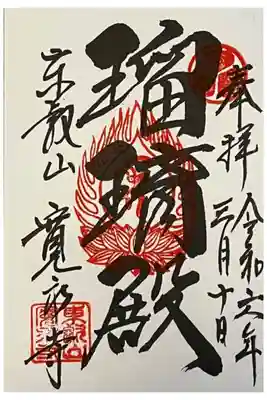 奉拝
令和六年
三月十日
瑠璃殿
東叡山 寛永寺